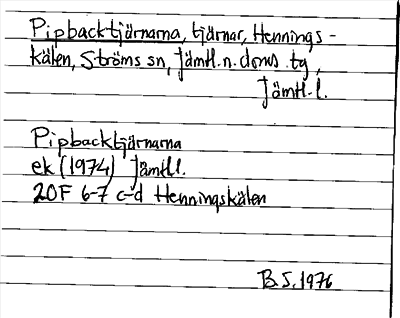 Pipbacktjärnarna, tjärnar, Hennings-
kälen, Ströms sn, Jämtl. n. doms. tg,
Jämtl. l.
Pipbacktjärnarna
ek (1974) Jämtl l.
20F 6-7 c-d Henningskälen
B.S. 1976